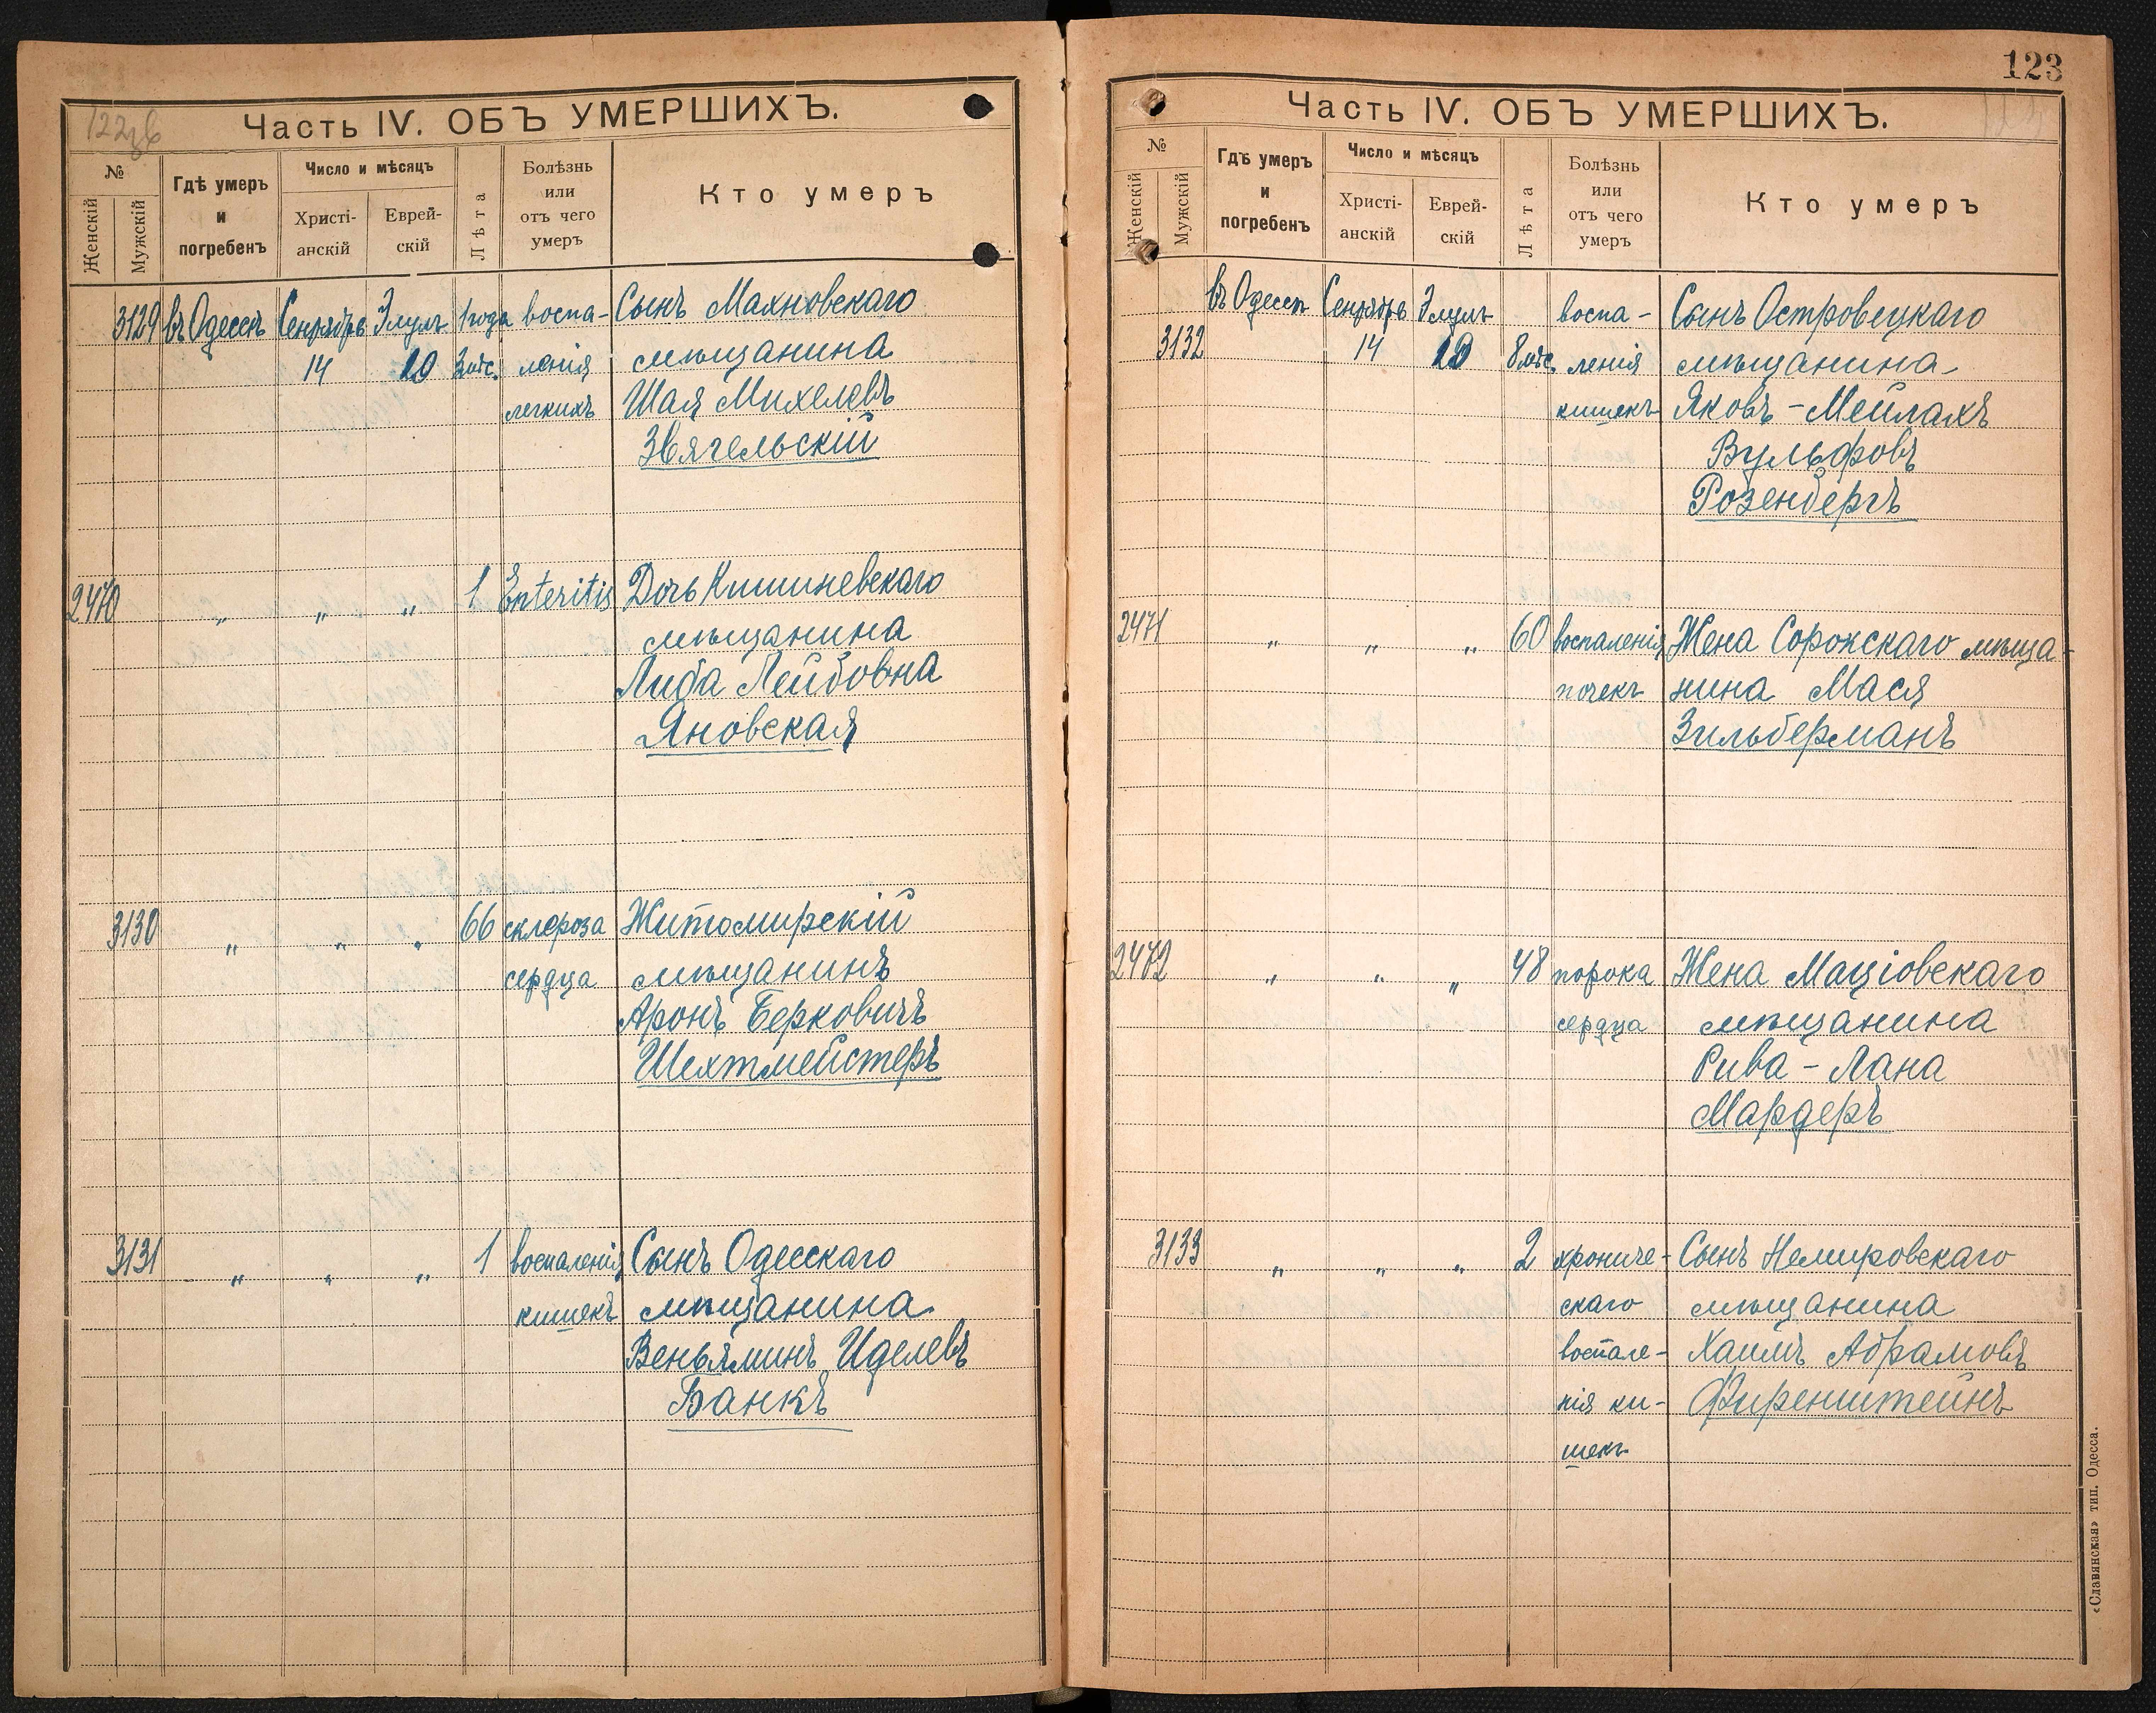 122об
Часть IV. ОБЪ УМЕРШИХЪ.
№
Женскій
Мужскій
Гдѣ умеръ
и
погребенъ
Число и мѣсяцъ
Христі-
анскій
Еврей-
скій
Лѣта
Болѣзнь
или
отъ чего
умеръ
Кто умеръ
3129 въ Одессѣ Сентябрь Элулъ 1 года воспа- Сынъ Махновскаго
14 10 3 мѣс. ленія мѣщанина
легкихъ Шая Михелевъ
Звягельскій
2470 „ „ „ 1 Enteritis Дочь Кишиневскаго
мѣщанина
Либа Лейбовна
Яновская
3130 „ „ „ 66 склероза Житомирскій
сердца мѣщанинъ
Аронъ Берковичъ
Шехтмейстеръ
3131 „ „ „ 1 воспаленія Сынъ Одесскаго
кишекъ мѣщанина
Веньяминъ Иделевъ
Банкъ
123
Часть IV. ОБЪ УМЕРШИХЪ.
№
Женскій
Мужскій
Гдѣ умеръ
и
погребенъ
Число и мѣсяцъ
Христі-
анскій
Еврей-
скій
Лѣта
Болѣзнь
или
отъ чего
умеръ
Кто умеръ
въ Одессѣ Сентябрь Элулъ воспа- Сынъ Островецкаго
3132 14 10 8 мѣс. ленія мѣщанина
кишекъ Яковъ-Мейлахъ
Вульфовъ
Розенбергъ
2471 „ „ „ 60 воспаленія Жена Сорокскаго мѣща-
почекъ нина Мася
Зильберманъ
2472 „ „ „ 48 порока Жена Маціовскаго
сердца мѣщанина
Рива-Лана
Мардеръ
3133 „ „ „ 2 хрониче- Сынъ Немировскаго
скаго мѣщанина
воспале- Хаимъ Абрамовъ
нія ки- Фиренштейнъ
шекъ
«Славянская» тип. Одесса.